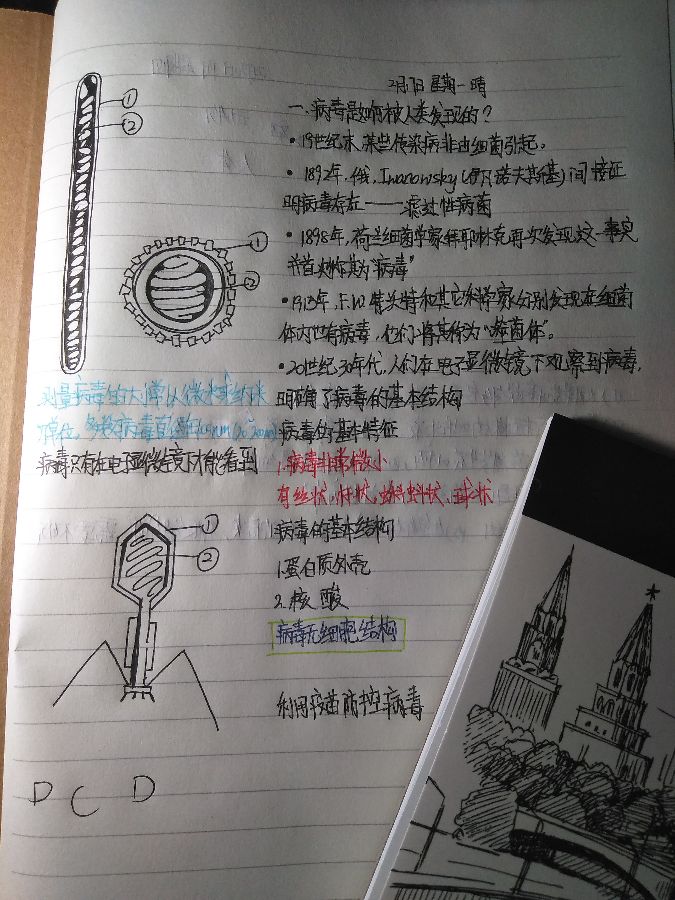 2月7日 星期一 晴
一.病毒是如何被人类发现的?
•19世纪末,某些传染病非由细菌引起。
•1892年,俄,Iwanowsky(伊凡诺夫斯基)间接证
明病毒存在——滤过性病菌
•1898年,荷兰细菌学家拜耶林克再次发现这一事实
并首次将其称为"病毒"
和其它科学家分别发现在细菌
体内也有病毒,他们将其称为"噬菌体"。
•20世纪30年代,人们在电子显微镜下观察到病毒,
明确了病毒的基本结构
病毒的基本特征
1.病毒非常微小
有丝状,杆状,蝌蚪状,球状
病毒的基本结构
1.蛋白质外壳
2.核酸
病毒无细胞结构
利用疫苗防控病毒
①
②
①
②
测量病毒的大小常以微米或纳米
为单位,多数病毒直径在
病毒只有在电子显微镜下才能看到
①
②
D C D